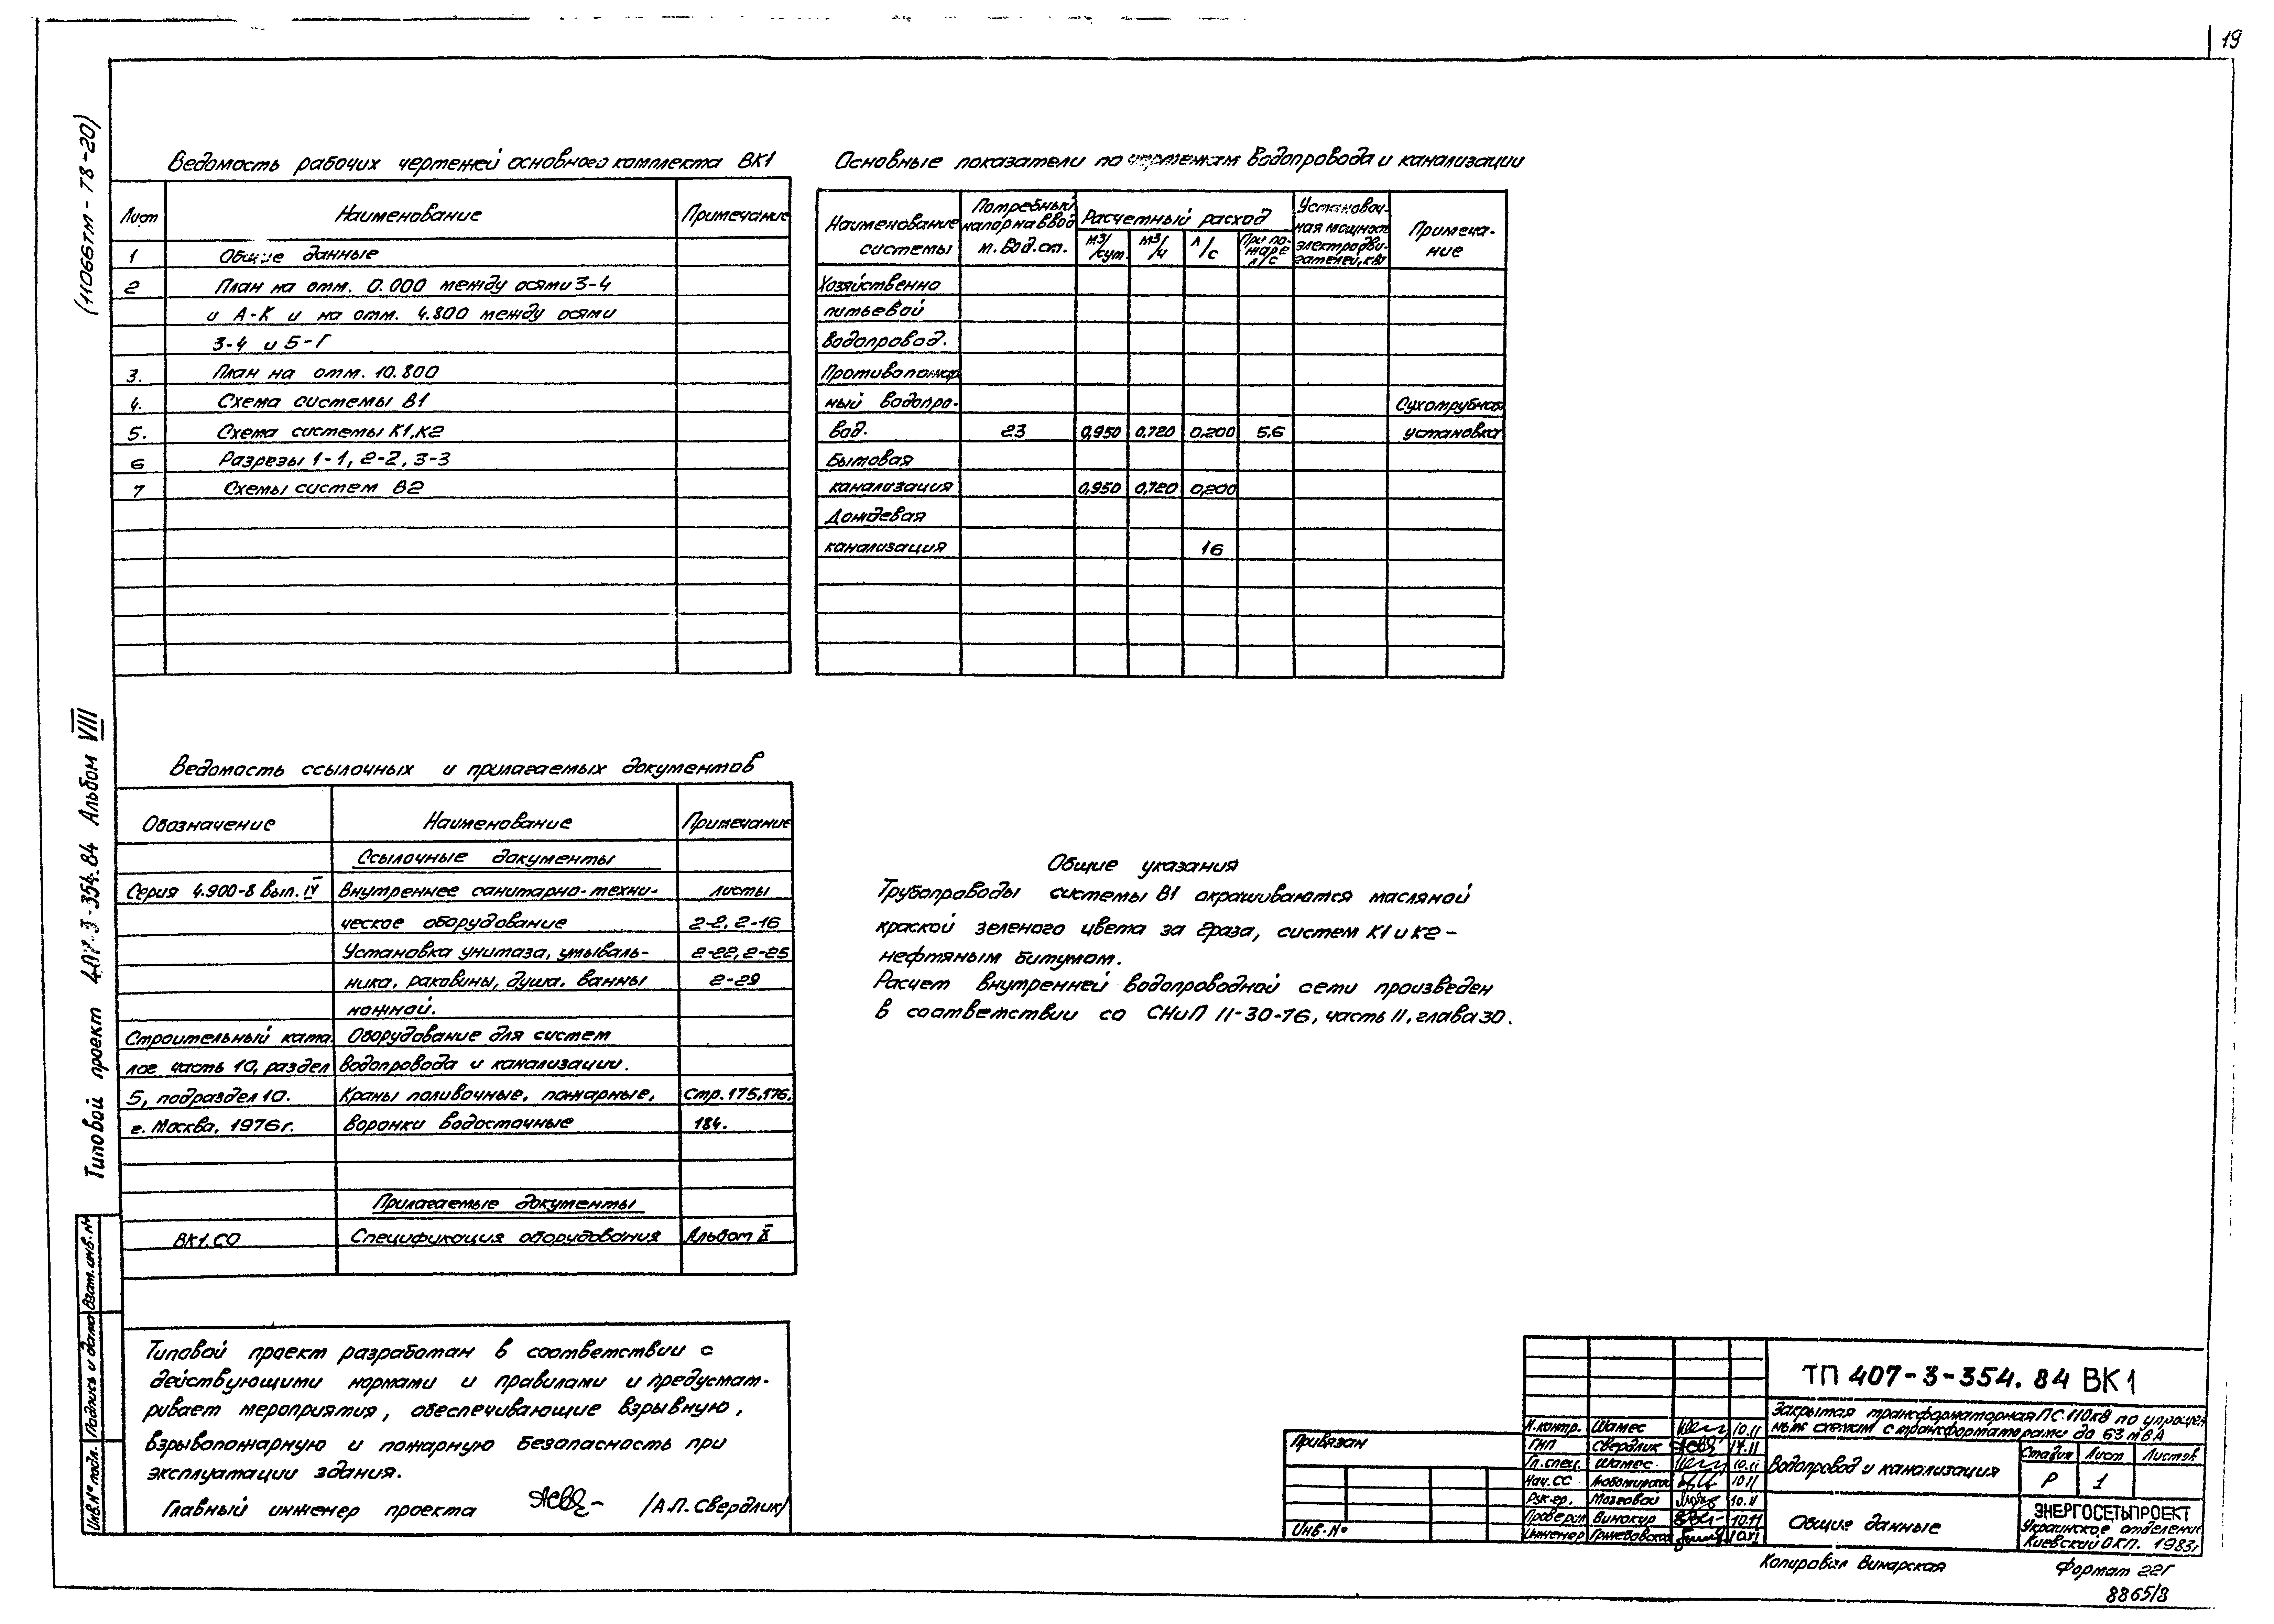 19
(11066тм-Т8-20)
Типовой проект 407-3-354.84 Альбом VIII
Ведомость рабочих чертежей основного комплекта ВК1
Лист Наименование Примечание
1 Общие данные
2 План на отм. 0.000 между осями 3-4
и А-К и на отм. 4.800 между осями
3-4 и Б-Г
3. План на отм. 10.800
4. Схема системы В1
5. Схема системы К1,К2
6 Разрезы 1-1, 2-2, 3-3
7 Схемы систем В2
Основные показатели по чертежам водопровода и канализации
Наименование системы
Потребный напор на вводе м. вод.ст.
Расчетный расход
м3/сут. м3/ч л/с При пожаре л/с
Установочная мощность электродвигателей, квт
Примечание
Хозяйственно
питьевой
водопровод.
Противопожар
ный водопро- Сухотрубная
вод. 23 0,950 0,720 0,200 5,6 установка
Бытовая
канализация 0,950 0,720 0,200
Дождевая
канализация 16
Ведомость ссылочных и прилагаемых документов
Обозначение Наименование Примечание
Ссылочные документы
Серия 4.900-8 вып. IV Внутреннее санитарно-техни- Листы
ческое оборудование 2-2, 2-16
Установка унитаза, умываль- 2-22, 2-25
ника, раковины, душа, ванны 2-29
ножной.
Строительный ката Оборудование для систем
лог часть 10, раздел водопровода и канализации.
5, подраздел 10. Краны поливочные, пожарные, стр. 175,176,
г. Москва, 1976г. воронки водосточные 184.
Прилагаемые документы
ВК1.СО Спецификация оборудования Альбом X
Общие указания
Трубопроводы системы В1 окрашиваются масляной
краской зеленого цвета за 2раза, систем К1 и К2-
нефтяным битумом.
Расчет внутренней водопроводной сети произведен
в соответствии со СНиП II-30-76, часть II, глава 30.
Типовой проект разработан в соответствии с
действующими нормами и правилами и предусмат-
ривает мероприятия, обеспечивающие взрывную,
взрывопожарную и пожарную безопасность при
эксплуатации здания.
Главный инженер проекта /А.П. Свердлик/
Инв.№ подл. Подпись и дата Взам.инв.№
Привязан
Инв.№
Н.контр. Шамес 10.11
ГИП Свердлик 14.11
Гл.спец. Шамес 10.11
Нач.СС 10.11
Рук.гр. Мозговой 10.11
Проверил Винокур 10.11
Инженер Гржебовская
ТП 407-3-354.84 ВК1
Закрытая трансформаторная ПС 110кв по упрощен
ным схемам с трансформаторами до 63 мВА
Водопровод и канализация
Стадия Лист Листов
Р 1
Общие данные
ЭНЕРГОСЕТЬПРОЕКТ
Украинское отделение
Киевский ОКП. 1983г
Копировал Винарская
Формат 22Г
8865/8